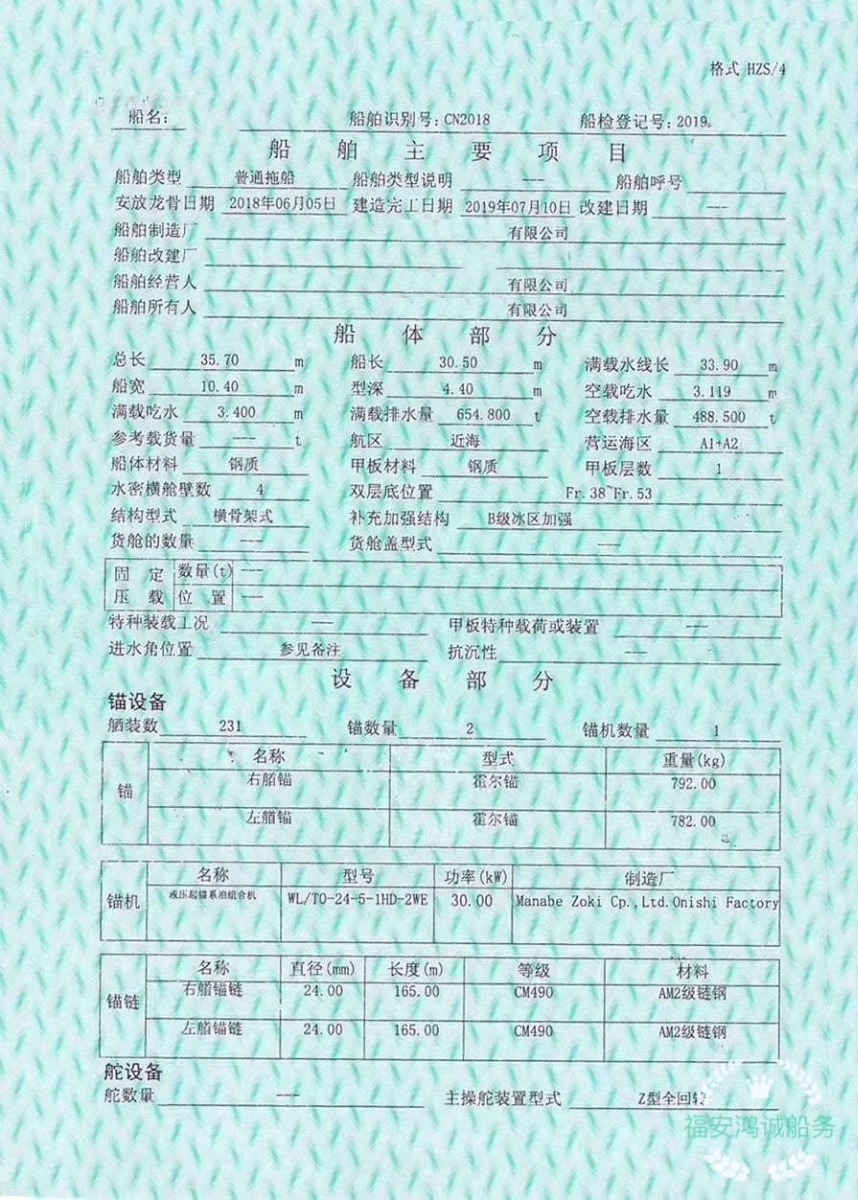 格式 HZS/4
船名: 船舶识别号:CN2018 船检登记号:2019
船 舶 主 要 项 目
船舶类型 普通拖船 船舶类型说明 --- 船舶呼号
安放龙骨日期 2018年06月05日 建造完工日期 2019年07月10日 改建日期 ---
船舶制造厂 有限公司
船舶改建厂
船舶经营人 有限公司
船舶所有人 有限公司
船 体 部 分
总长 35.70 m 船长 30.50 m 满载水线长 33.90 m
船宽 10.40 m 型深 4.40 m 空载吃水 3.119 m
满载吃水 3.400 m 满载排水量 654.800 t 空载排水量 488.500 t
参考载货量 --- t 航区 近海 营运海区 A1+A2
船体材料 钢质 甲板材料 钢质 甲板层数 1
水密横舱壁数 4 双层底位置 Fr.38~Fr.53
结构型式 横骨架式 补充加强结构 B级冰区加强
货舱的数量 --- 货舱盖型式 ---
固 定 数量(t) ---
压 载 位 置 ---
特种装载工况 --- 甲板特种载荷或装置 ---
进水角位置 参见备注 抗沉性 ---
设 备 部 分
锚设备
舾装数 231 锚数量 2 锚机数量 1
名称 型式 重量(kg)
右艏锚 霍尔锚 792.00
锚
左艏锚 霍尔锚 782.00
名称 型号 功率(kW) 制造厂
锚机 液压起锚系泊组合机 WL/TO-24-5-1HD-2WE 30.00 Manabe Zoki Cp.,Ltd.Onishi Factory
名称 直径(mm) 长度(m) 等级 材料
右艏锚链 24.00 165.00 CM490 AM2级链钢
锚链
左艏锚链 24.00 165.00 CM490 AM2级链钢
舵设备
舵数量 --- 主操舵装置型式 Z型全回转
福安鸿诚船务